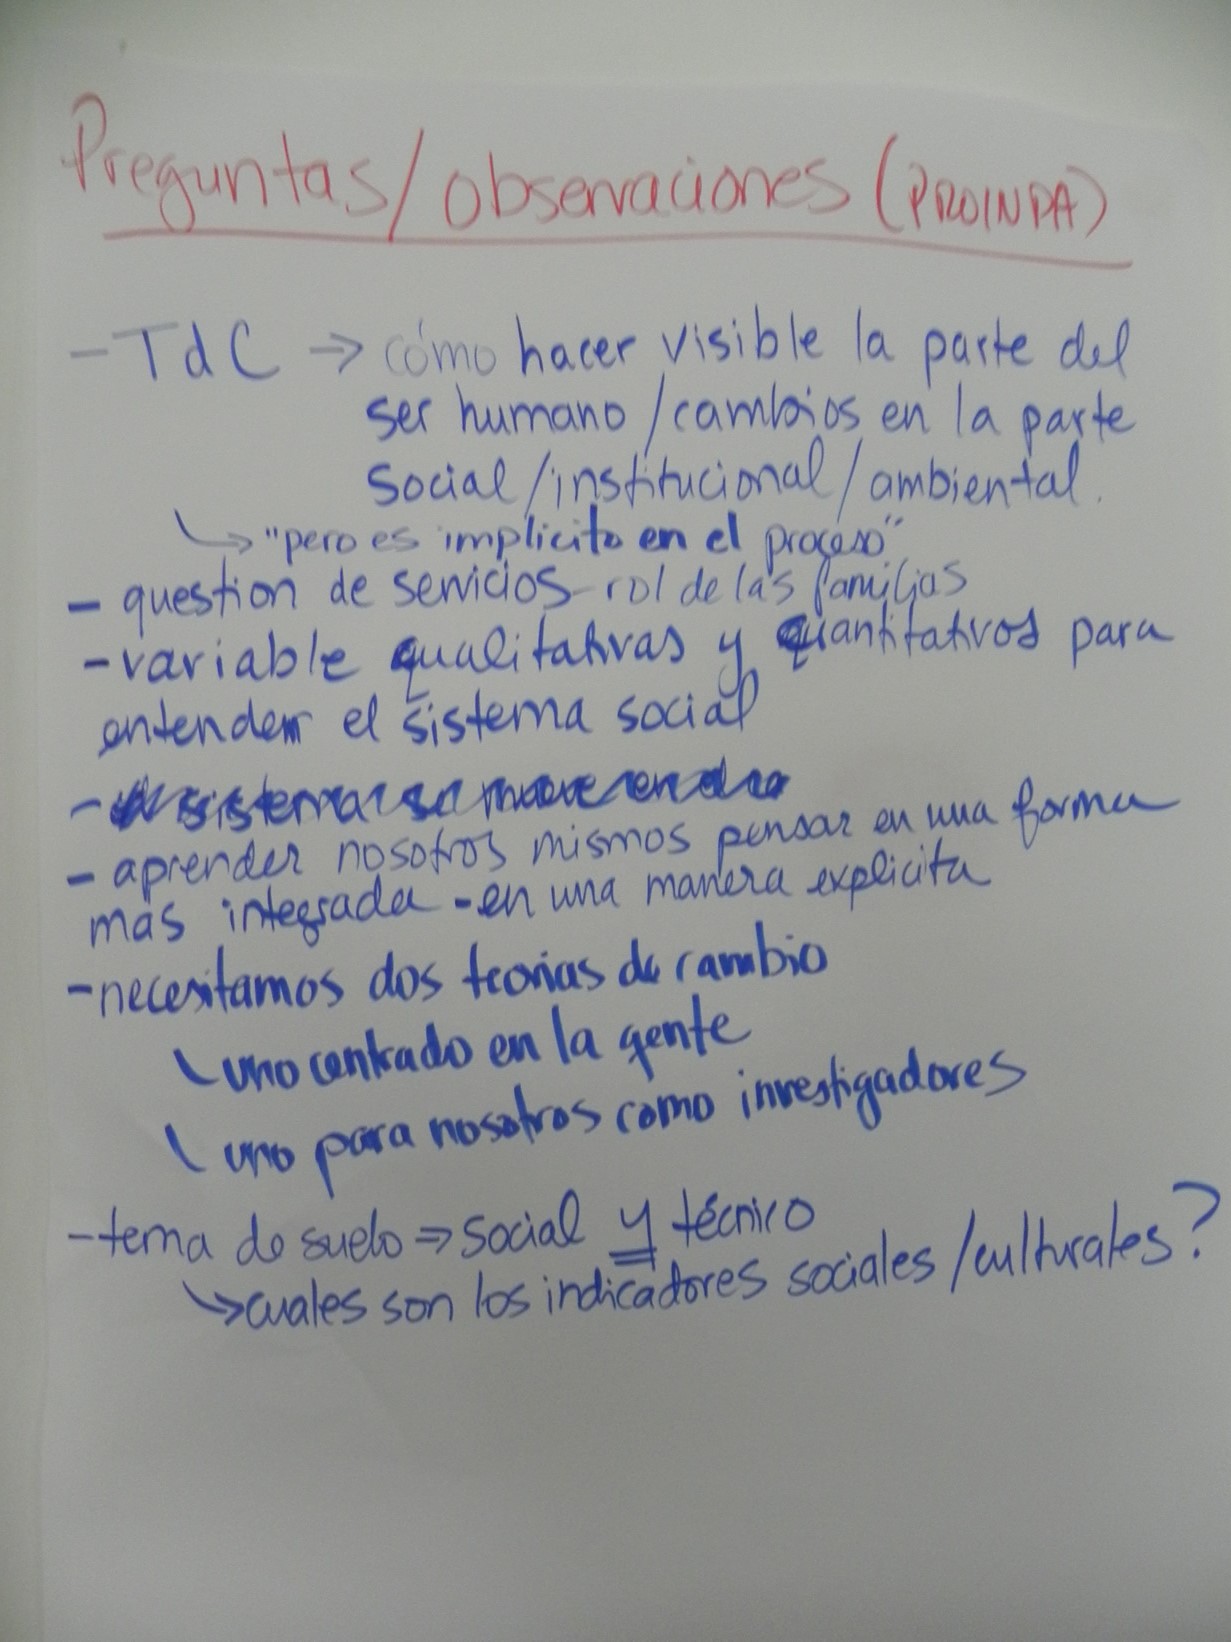 Preguntas/observaciones (PROINPA)
- TdC → cómo hacer visible la parte del
ser humano/cambios en la parte
social/institucional/ambiental.
↳ "pero es implicito en el proceso"
- question de servicios - rol de las familias
- variable qualitativas y quantitativos para
entender el sistema social
- sistema se mueve en
- aprender nosotros mismos pensar en una forma
más integrada - en una manera explicita
- necesitamos dos teorias de cambio
\ uno centrado en la gente
\ uno para nosotros como investigadores
- tema de suelo ⇒ social y técnico
↳ cuales son los indicadores sociales/culturales?